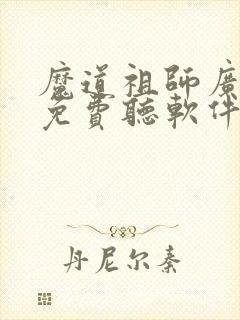 魔道祖師廣
免費聽軟件
丹尼尔秦